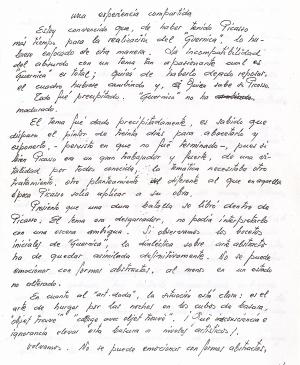 una experiencia compartida
Estoy convencido que, de haber tenido Picasso
más tiempo para la realización del "Guernica", lo hu-
biera enfocado de otra manera. La incompatibilidad
del absurdo con un tema tan apasionante cual es
"Guernica" es total; quizás de haberlo dejado reposar,
el cuadro hubiese cambiado y, ¿Quién sabe si Picasso
Todo fué precipitado. "Guernica" no ha
madurado.
El tema fué dado precipitadamente, es sabido que
dispuso el pintor de treinta días para abocetarlo y
exponerlo. - persisto en que no fué terminado -, pues si
bien Picasso era un gran trabajador y fuerte, de una vi-
talidad por todos conocida, la temática necesitaba otro
tratamiento, otro planteamiento diferente al que en aquella
época Picasso solía aplicar a su obra.
Presiento que una dura batalla se libró dentro de
Picasso. El tema era desgarrador, no podía interpretarlo
con una escena ambigua. Si observamos los bocetos
iniciales de "Guernica", la dialéctica sobre arte abstracto
ha de quedar asimilada definitivamente. No se puede
emocionar con formas abstractas, al menos en un estado
no alterado.
En cuanto al "art-dada", la situación está clara: es el
arte de hurgar por las noches en los cubos de basura,
"objet trouvé" "collage avec objet trouvé", ¡Qué inconsciencia e
ignorancia elevar esta basura a niveles artísticos!.
Volvamos. No se puede emocionar con formas abstractas,